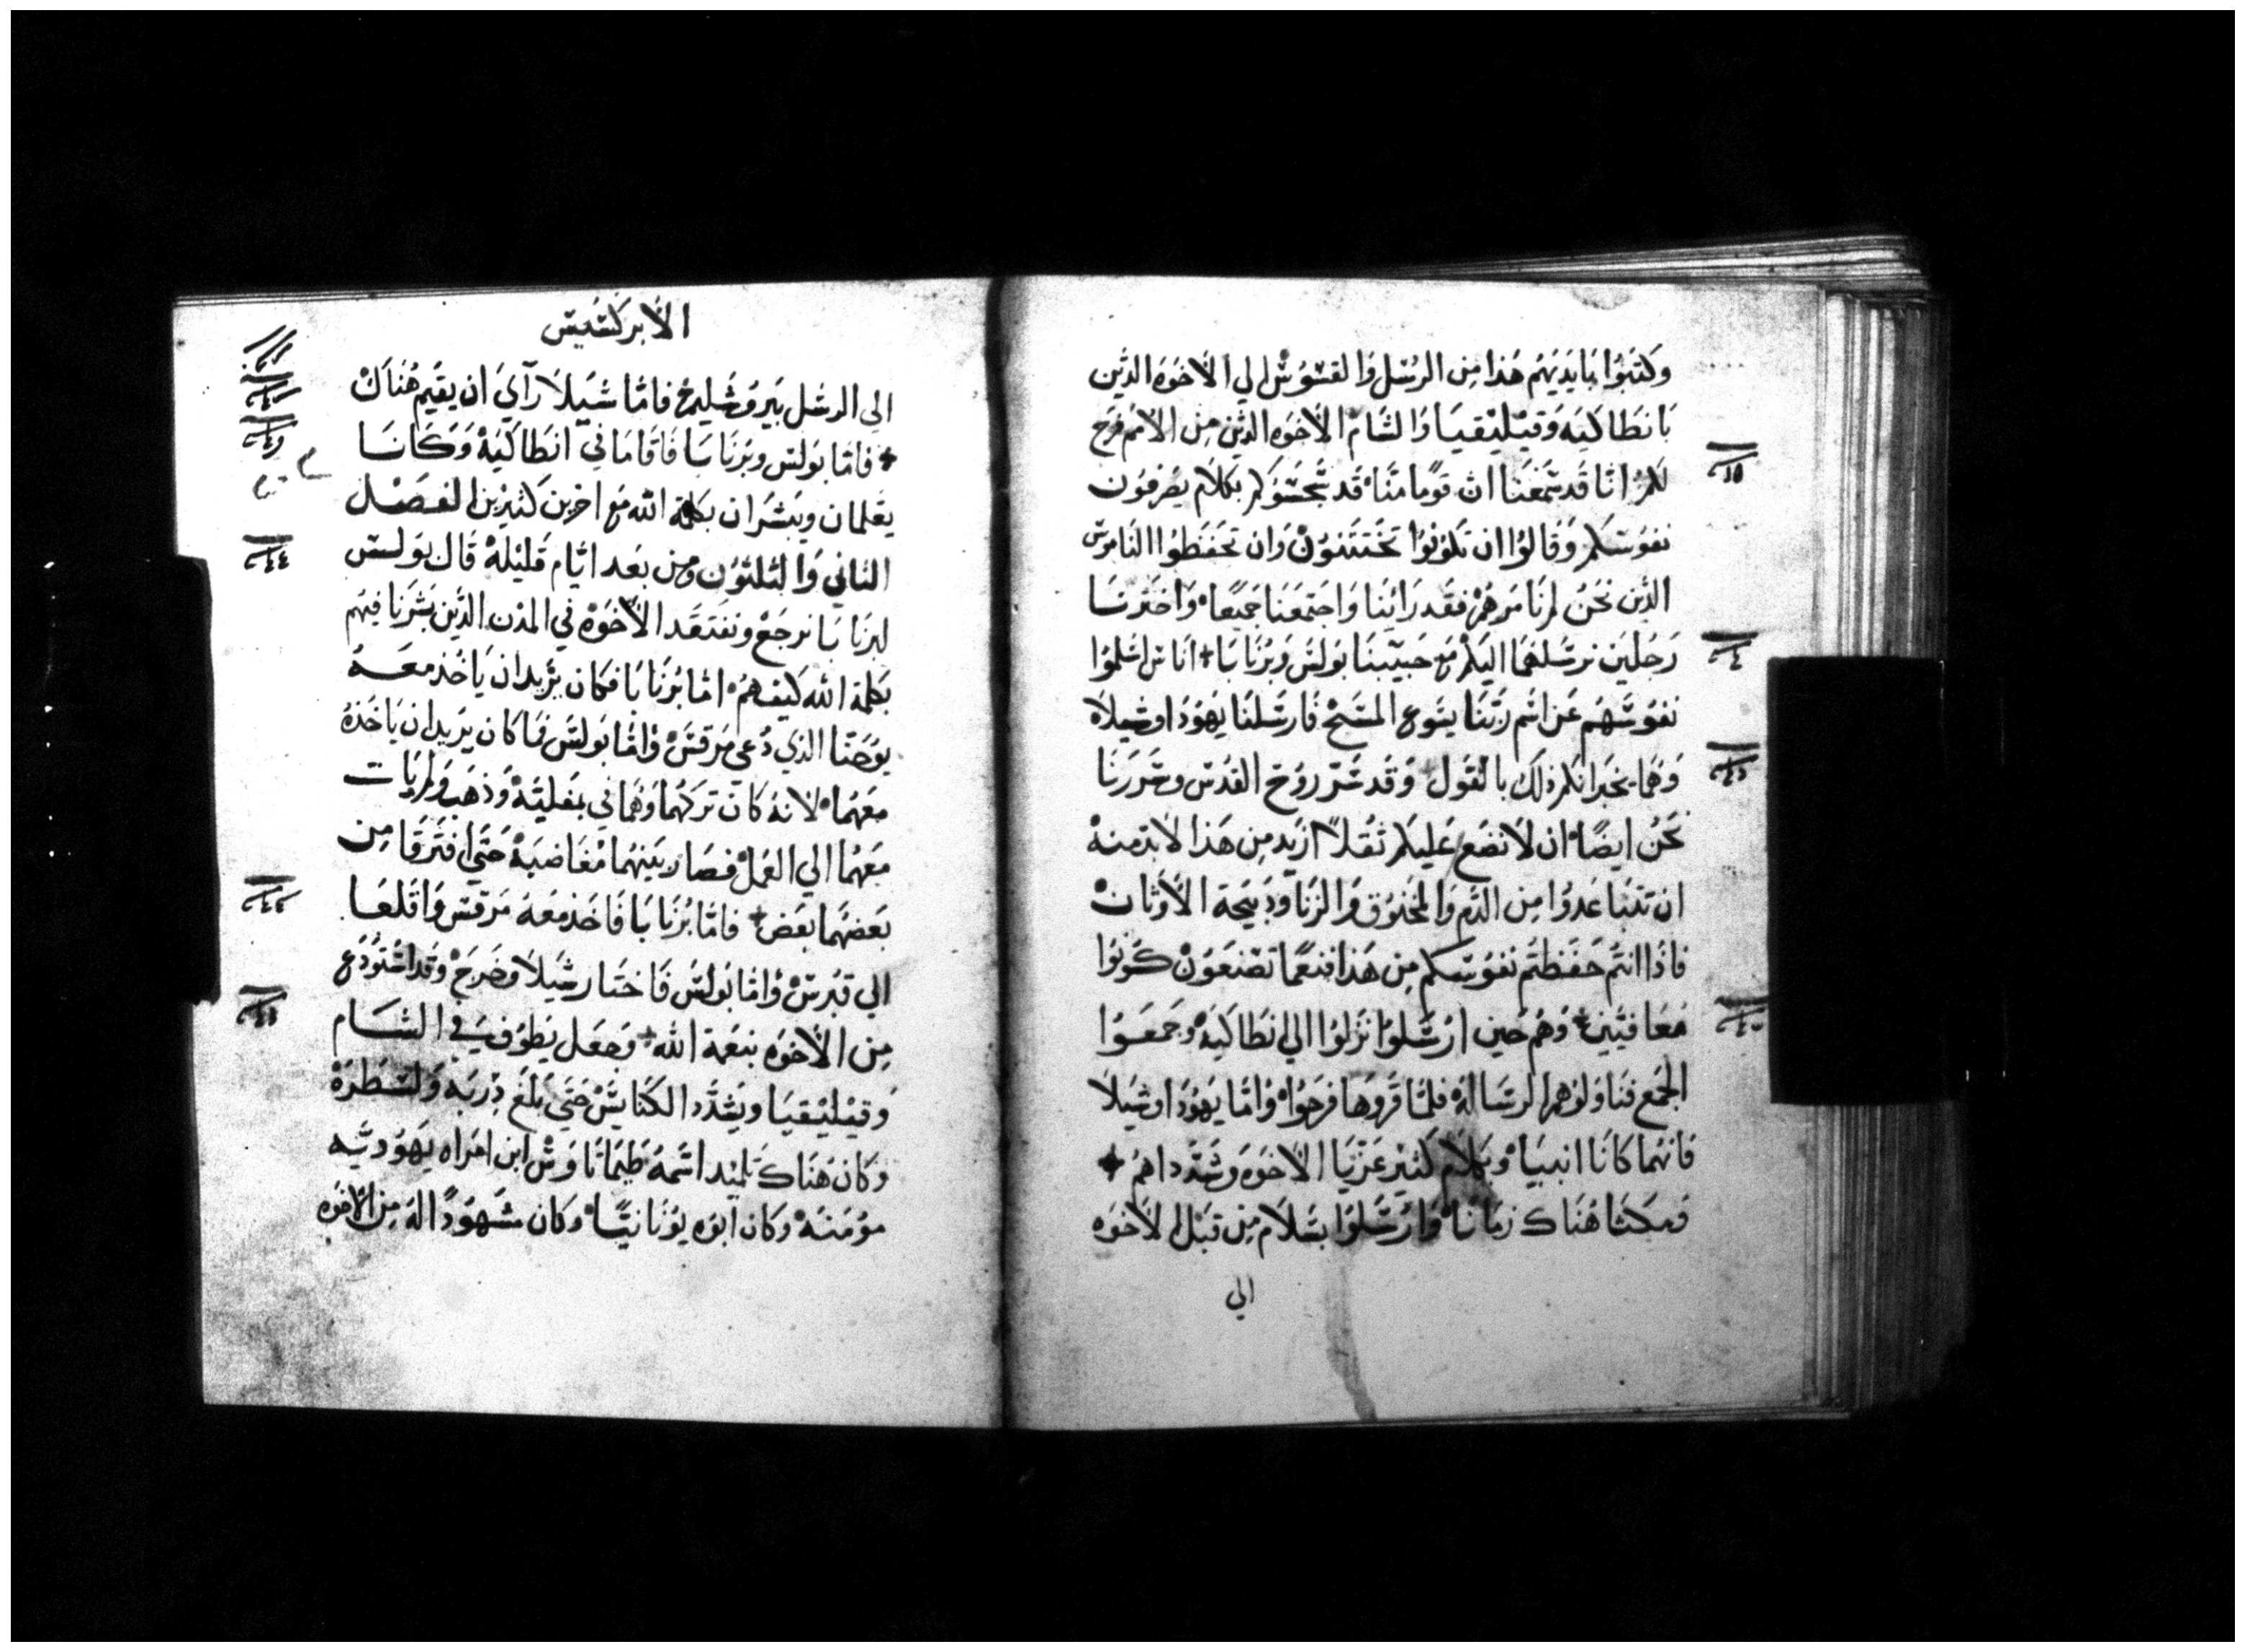 وكتبوا بايديهم هذا من الرسل والقسوس الي الاخوه الذين
بانطاكيه وقيليقيا والشام الاخوه الذين من الامم فرح
لكم اننا قد سمعنا ان قوما منا قد سجسوكم بكلام يصرفون
نفوسكم وقالوا ان تكونوا تختتنون وان تحفظوا الناموس
الذين نحن لم نامرهم فقد راينا واجتمعنا جميعا واخترنا
رجلين نرسلهما اليكم مع حبيبنا بولس وبرنابا + اناس اسلموا
نفوسهم عن اسم ربنا يسوع المسيح فارسلنا يهودا وشيلا
وهما يخبرانكم ذلك بالقول + وقد سر روح القدس وحررنا
نحن ايضا ان لا نضع عليكم ثقلا ازيد من هذا لابد منه
ان تتباعدوا من الدم والمخنوق والزنا وذبيحة الاوثان
فاذا انتم حفظتم نفوسكم من هذا فنعما تصنعون كونوا
معافيين + وهم حين ارسلوا نزلوا الي انطاكيه وجمعوا
الجمع فناولوهم الرساله فلما قروها فرحوا واما يهودا وشيلا
فانهما كانا انبيا وبكلام كثير عزيا الاخوه وشددا هم +
فمكثا هناك زمانا وارسلوا بسلام من قبل الاخوه
الي
الابركسيس
الي الرسل بيروشليم فاما شيلا راي ان يقيم هناك
+ فاما بولس وبرنابا فاقاما في انطاكيه وكانا
يعلمان ويبشران بكلمة الله مع اخرين كثيرين الفصل
الثاني والثلثون ومن بعد ايام قليله قال بولس
لبرنابا نرجع ونفتقد الاخوه في المدن الذين بشرنا فيهم
بكلمة الله كيف هم اما برنابا فكان يريد ان ياخذ معه
يوحنا الذي دعي مرقس واما بولس فما كان يريد ان ياخذه
معهما لانه كان تركهما وهما في بمفليه وذهب ولم يات
معهما الي العمل فصار بينهما مغاضبه حتي افترقا من
بعضهما بعض + فاما برنابا فاخذ معه مرقس واقلعا
الي قبرس واما بولس فاختار شيلا وخرج وقد استودع
من الاخوه بنعمة الله + وجعل يطوف في الشام
وقيليقيا ويشدد الكنايس حتي بلغ دربه ولسطره
وكان هناك تلميد اسمه طيماتاوس ابن امراه يهوديه
مومنه وكان ابوه يونانيا وكان مشهودا له من الاخوه